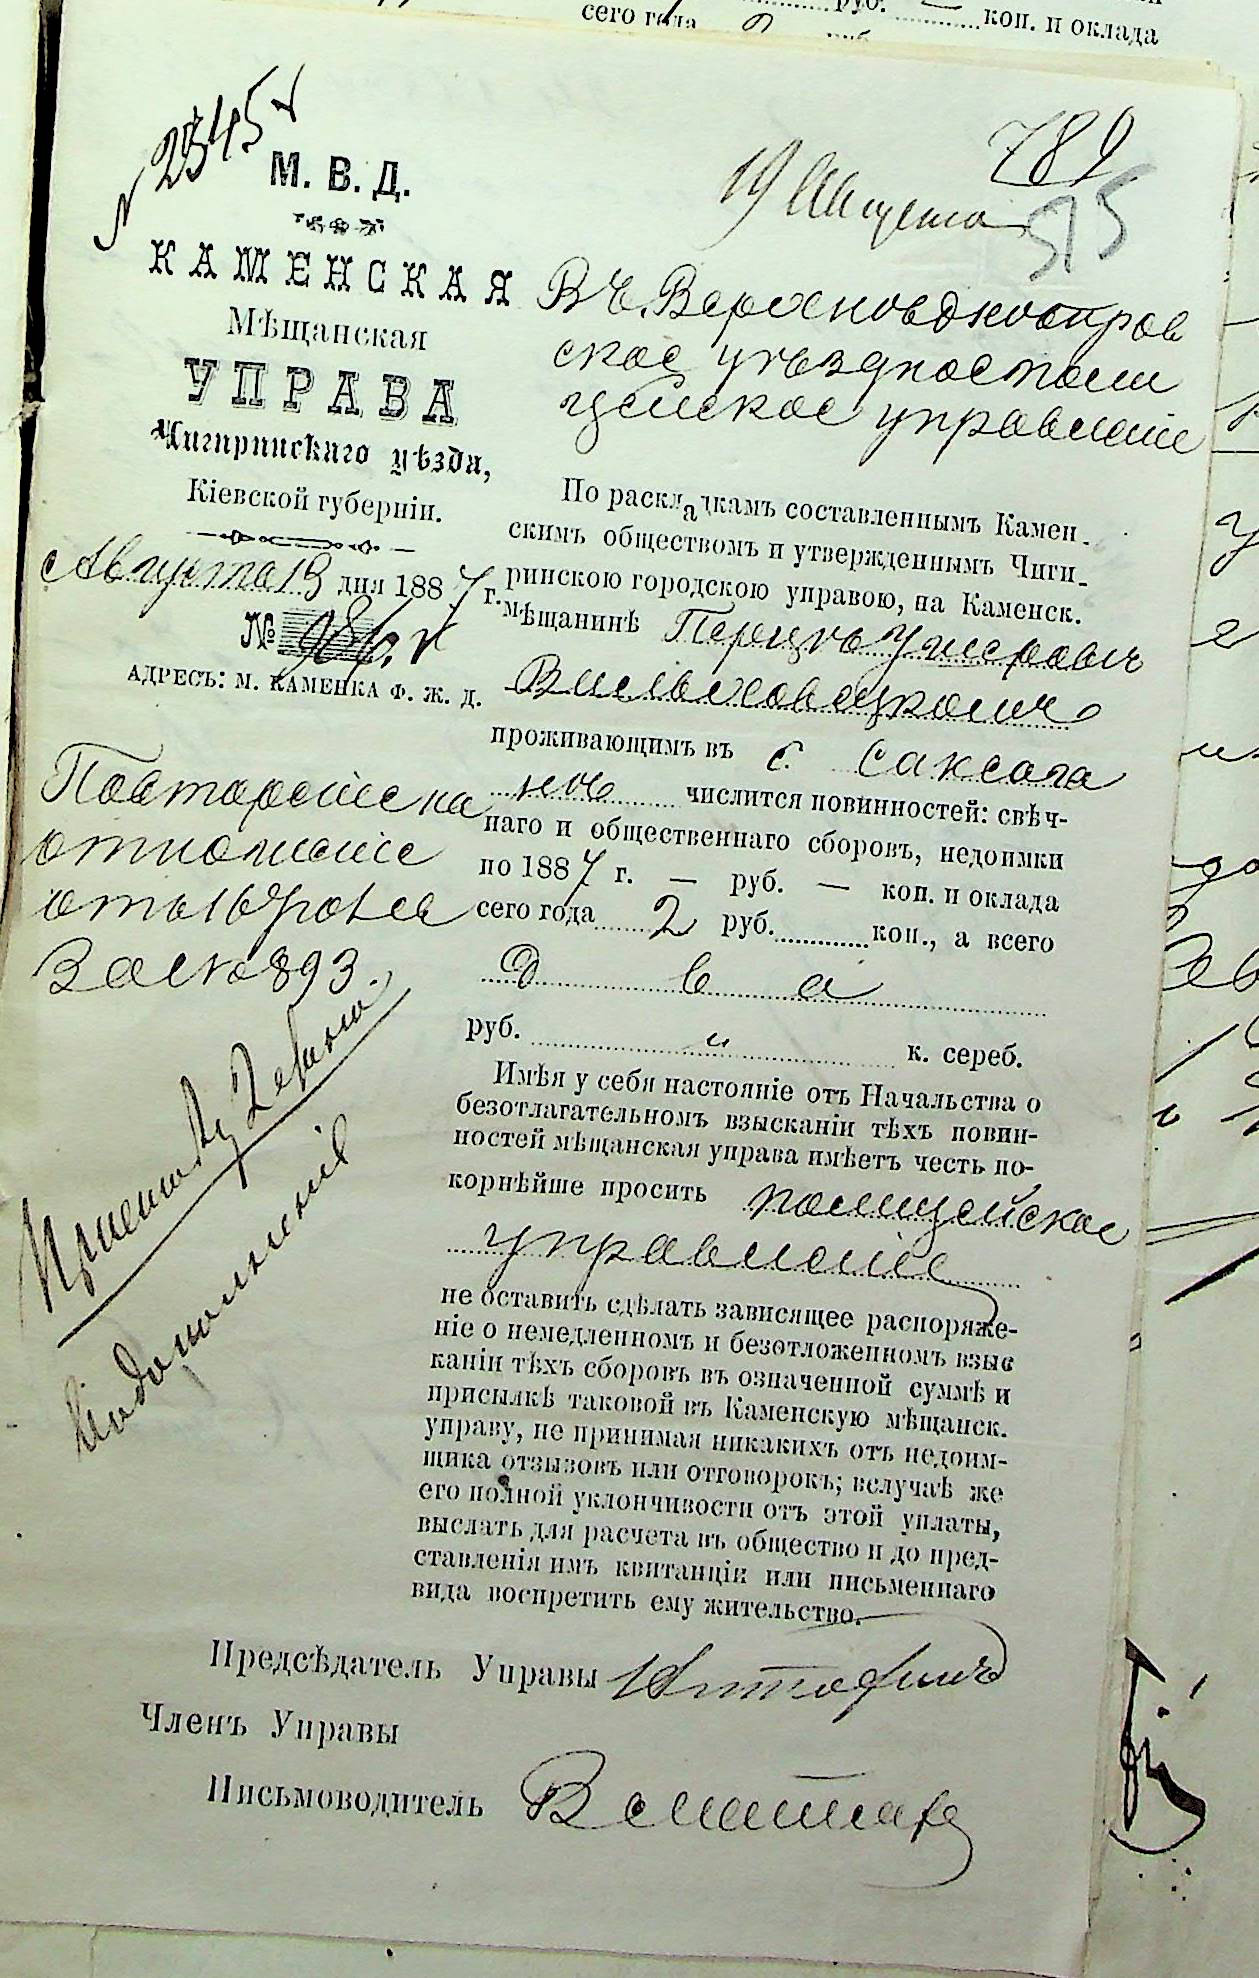 руб. коп. и оклада
сего года 2 руб.
№ 2345
М. В. Д.
КАМЕНСКАЯ
Мѣщанская
УПРАВА
Чигиринскаго уѣзда,
Кіевской губерніи.
Августа 13 дня 1887 г.
№ 986.
АДРЕСЪ: М. КАМЕНКА Ф. Ж. Д.
789
19 Августа
515
Въ Верхнеднепров
ское уѣздное поли
цейское управленіе
По раскладкамъ составленнымъ Камен-
скимъ обществомъ и утвержденнымъ Чиги-
ринскою городскою управою, на Каменск.
мѣщанинѣ Перецкѣ
проживающимъ въ с. Саксага
нѣ числится повинностей: свѣч-
наго и общественнаго сборовъ, недоимки
по 1887 г. — руб. — коп. и оклада
сего года 2 руб. коп., а всего
Два
руб. к. сереб.
Имѣя у себя настояніе отъ Начальства о
безотлагательномъ взысканіи тѣхъ повин-
ностей мѣщанская управа имѣетъ честь по-
корнѣйше просить полицейское
управленіе
не оставить сдѣлать зависящее распоряже-
ніе о немедленномъ и безотложенномъ взыс
каніи тѣхъ сборовъ въ означенной суммѣ и
присылкѣ таковой въ Каменскую мѣщанск.
управу, не принимая никакихъ отъ недоим-
щика отзызовъ или отговорокъ; вслучаѣ же
его полной уклончивости отъ этой уплаты,
выслать для расчета въ общество и до пред-
ставленія имъ квитанціи или письменнаго
вида воспретить ему жительство.
Повтореніе на
отношеніе
отъ 16
За № 893.
Приставу 2
Къ исполненію
Предсѣдатель Управы
Членъ Управы
Письмоводитель